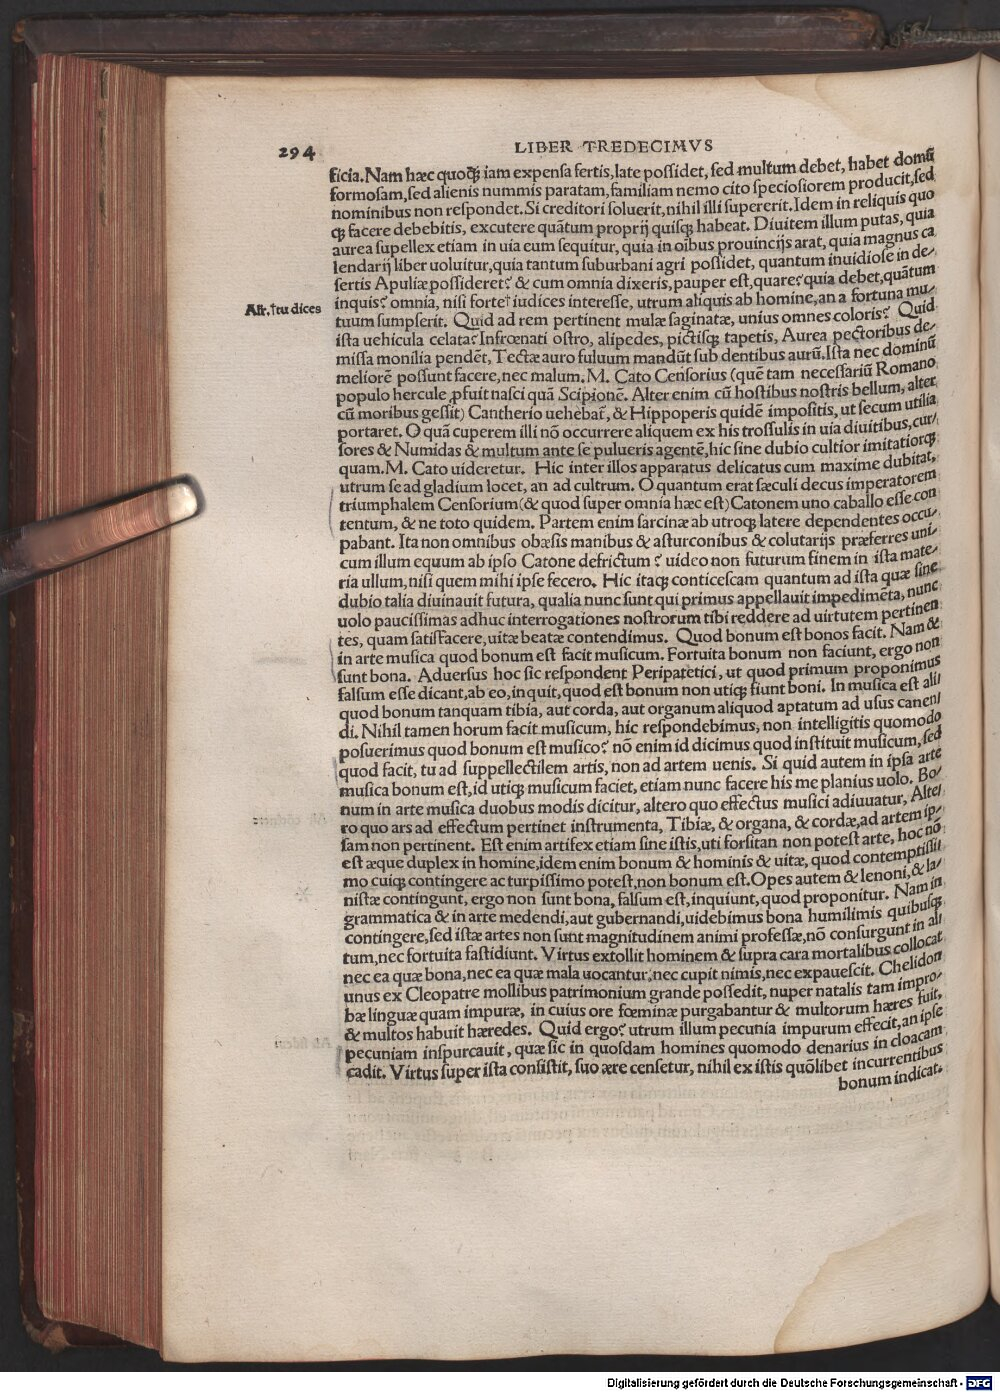 294
LIBER TREDECIMVS
ficia. Nam hæc quoq iam expensa fertis, late possidet, sed multum debet, habet domũ
formosam, sed alienis nummis paratam, familiam nemo cito speciosiorem producit, sed
nominibus non respondet. Si creditori soluerit, nihil illi supererit. Idem in reliquis quo
qꝫ facere debebitis, excutere quãtum proprij quisqꝫ habeat. Diuitem illum putas, quia
aurea supellex etiam in uia eum sequitur, quia in oĩbus prouincijs arat, quia magnus ca
lendarij liber uoluitur, quia tantum suburbani agri possidet, quantum inuidiose in de/
sertis Apuliæ possideret? & cum omnia dixeris, pauper est, quare? quia debet, quãtum
Alr. †tu dices
inquis? omnia, nisi forte† iudices interesse, utrum aliquis ab homine, an a fortuna mu/
tuum sumpserit. Quid ad rem pertinent mulæ saginatæ, unius omnes coloris? Quid
ista uehicula celata? Infrœnati ostro, alipedes, pictisqꝫ tapetis, Aurea pectoribus de/
missa monilia pendẽt, Tectæ auro fuluum mandũt sub dentibus aurũ. Ista nec dominũ
meliorẽ possunt facere, nec malum. M. Cato Censorius (quẽ tam necessariũ Romano
populo hercule ꝓfuit nasci quã Scipionẽ. Alter enim cũ hostibus nostris bellum, alter
cũ moribus gessit) Cantherio uehebat̃, & Hippoperis quidẽ impositis, ut secum utilia
portaret. O quã cuperem illi nõ occurrere aliquem ex his trossulis in uia diuitibus, cur/
sores & Numidas & multum ante se pulueris agentẽ, hic sine dubio cultior imitatiorqꝫ
quam. M. Cato uideretur. Hic inter illos apparatus delicatus cum maxime dubitat,
utrum se ad gladium locet, an ad cultrum. O quantum erat sæculi decus imperatorem
triumphalem Censorium (& quod super omnia hæc est) Catonem uno caballo esse con
tentum, & ne toto quidem. Partem enim sarcinæ ab utroqꝫ latere dependentes occu/
pabant. Ita non omnibus obæsis manibus & asturconibus & colutarijs præferres uni/
cum illum equum ab ipso Catone defrictum? uideo non futurum finem in ista mate/
ria ullum, nisi quem mihi ipse fecero. Hic itaqꝫ conticescam quantum ad ista quæ sine
dubio talia diuinauit futura, qualia nunc sunt qui primus appellauit impedimẽta, nunc
uolo paucissimas adhuc interrogationes nostrorum tibi reddere ad uirtutem pertinen
tes, quam satisfacere, uitæ beatæ contendimus. Quod bonum est bonos facit. Nam &
in arte musica quod bonum est facit musicum. Fortuita bonum non faciunt, ergo non
sunt bona. Aduersus hoc sic respondent Peripatetici, ut quod primum proponimus
falsum esse dicant, ab eo, inquit, quod est bonum non utiqꝫ fiunt boni. In musica est ali/
quod bonum tanquam tibia, aut corda, aut organum aliquod aptatum ad usus canen/
di. Nihil tamen horum facit musicum, hic respondebimus, non intelligitis quomodo
posuerimus quod bonum est musico? nõ enim id dicimus quod instituit musicum, sed
quod facit, tu ad suppellectilem artis, non ad artem uenis. Si quid autem in ipsa arte
musica bonum est, id utiqꝫ musicum faciet, etiam nunc facere his me planius uolo. Bo/
num in arte musica duobus modis dicitur, altero quo effectus musici adiuuatur, Alte/
ro quo ars ad effectum pertinet instrumenta, Tibiæ, & organa, & cordæ, ad artem ip/
sam non pertinent. Est enim artifex etiam sine istis, uti forsitan non potest arte, hoc nõ
est æque duplex in homine, idem enim bonum & hominis & uitæ, quod contemptissi/
mo cuiqꝫ contingere ac turpissimo potest, non bonum est. Opes autem & lenoni, & la/
nistæ contingunt, ergo non sunt bona, falsum est, inquiunt, quod proponitur. Nam in
grammatica & in arte medendi, aut gubernandi, uidebimus bona humilimis quibusqꝫ
contingere, sed istæ artes non sunt magnitudinem animi professæ, nõ consurgunt in al/
tum, nec fortuita fastidiunt. Virtus extollit hominem & supra cara mortalibus collocat
nec ea quæ bona, nec ea quæ mala uocantur, nec cupit nimis, nec expauescit. Chelidon
unus ex Cleopatre mollibus patrimonium grande possedit, nuper natalis tam impro/
bæ linguæ quam impuræ, in cuius ore fœminæ purgabantur & multorum hæres fuit,
& multos habuit hæredes. Quid ergo? utrum illum pecunia impurum effecit, an ipse
pecuniam inspurcauit, quæ sic in quosdam homines quomodo denarius in cloacam
cadit. Virtus super ista consistit, suo ære censetur, nihil ex istis quõlibet incurrentibus
bonum indicat.
Digitalisierung gefördert durch die Deutsche Forschungsgemeinschaft - DFG